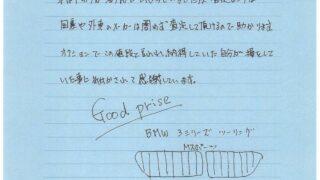 国産や外車のメーカーは関係なく査定して頂けるので助かります
オプションでこの値段と言われ、納得していた自分が損をして
いた事に気付かされて感謝しています。
Good prise
BMW 3シリーズ ツーリング
Mスポーツ